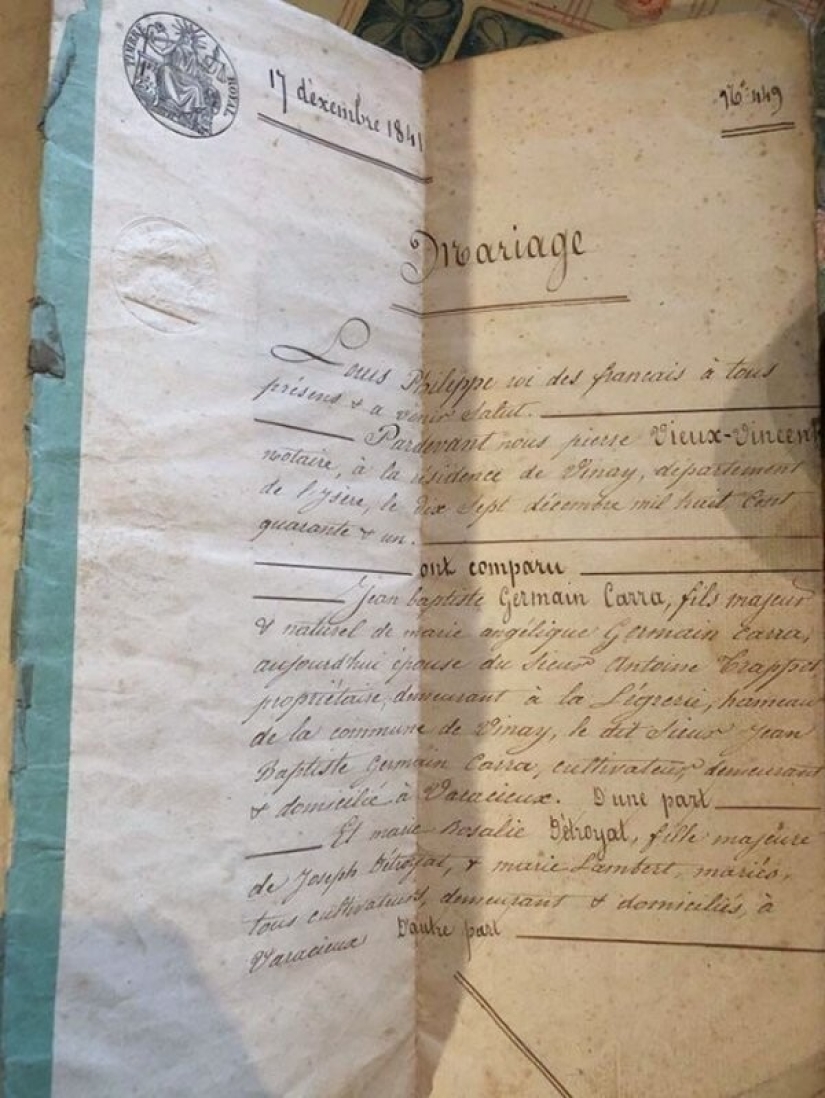 TIMBRE ROYAL
17 décembre 1841
N° 449
Mariage
Louis Philippe roi des français à tous
présens & a venir Salut.
Pardevant nous pierre Vieux-Vincent
notaire, à la résidence de Vinay, département
de l'isère, le dix Sept décembre mil huit Cent
quarante & un.
ont comparu
Jean baptiste Germain Carra, fils majeur
& naturel de marie angélique Germain Carra,
aujourd'hui épouse du Sieur Antoine Trappot
propriétaire, demeurant à la Légrerie, hameau
de la commune de Vinay, le dit Sieur Jean
Baptiste Germain Carra, cultivateur, demeurant
& domicilié à Varacieux. D'une part
Et marie Rosalie Détroyat, fille majeure
de Joseph Détroyat, & marie Lambert, mariés,
tous cultivateurs, demeurant & domiciliés, à
Varacieux D'autre part